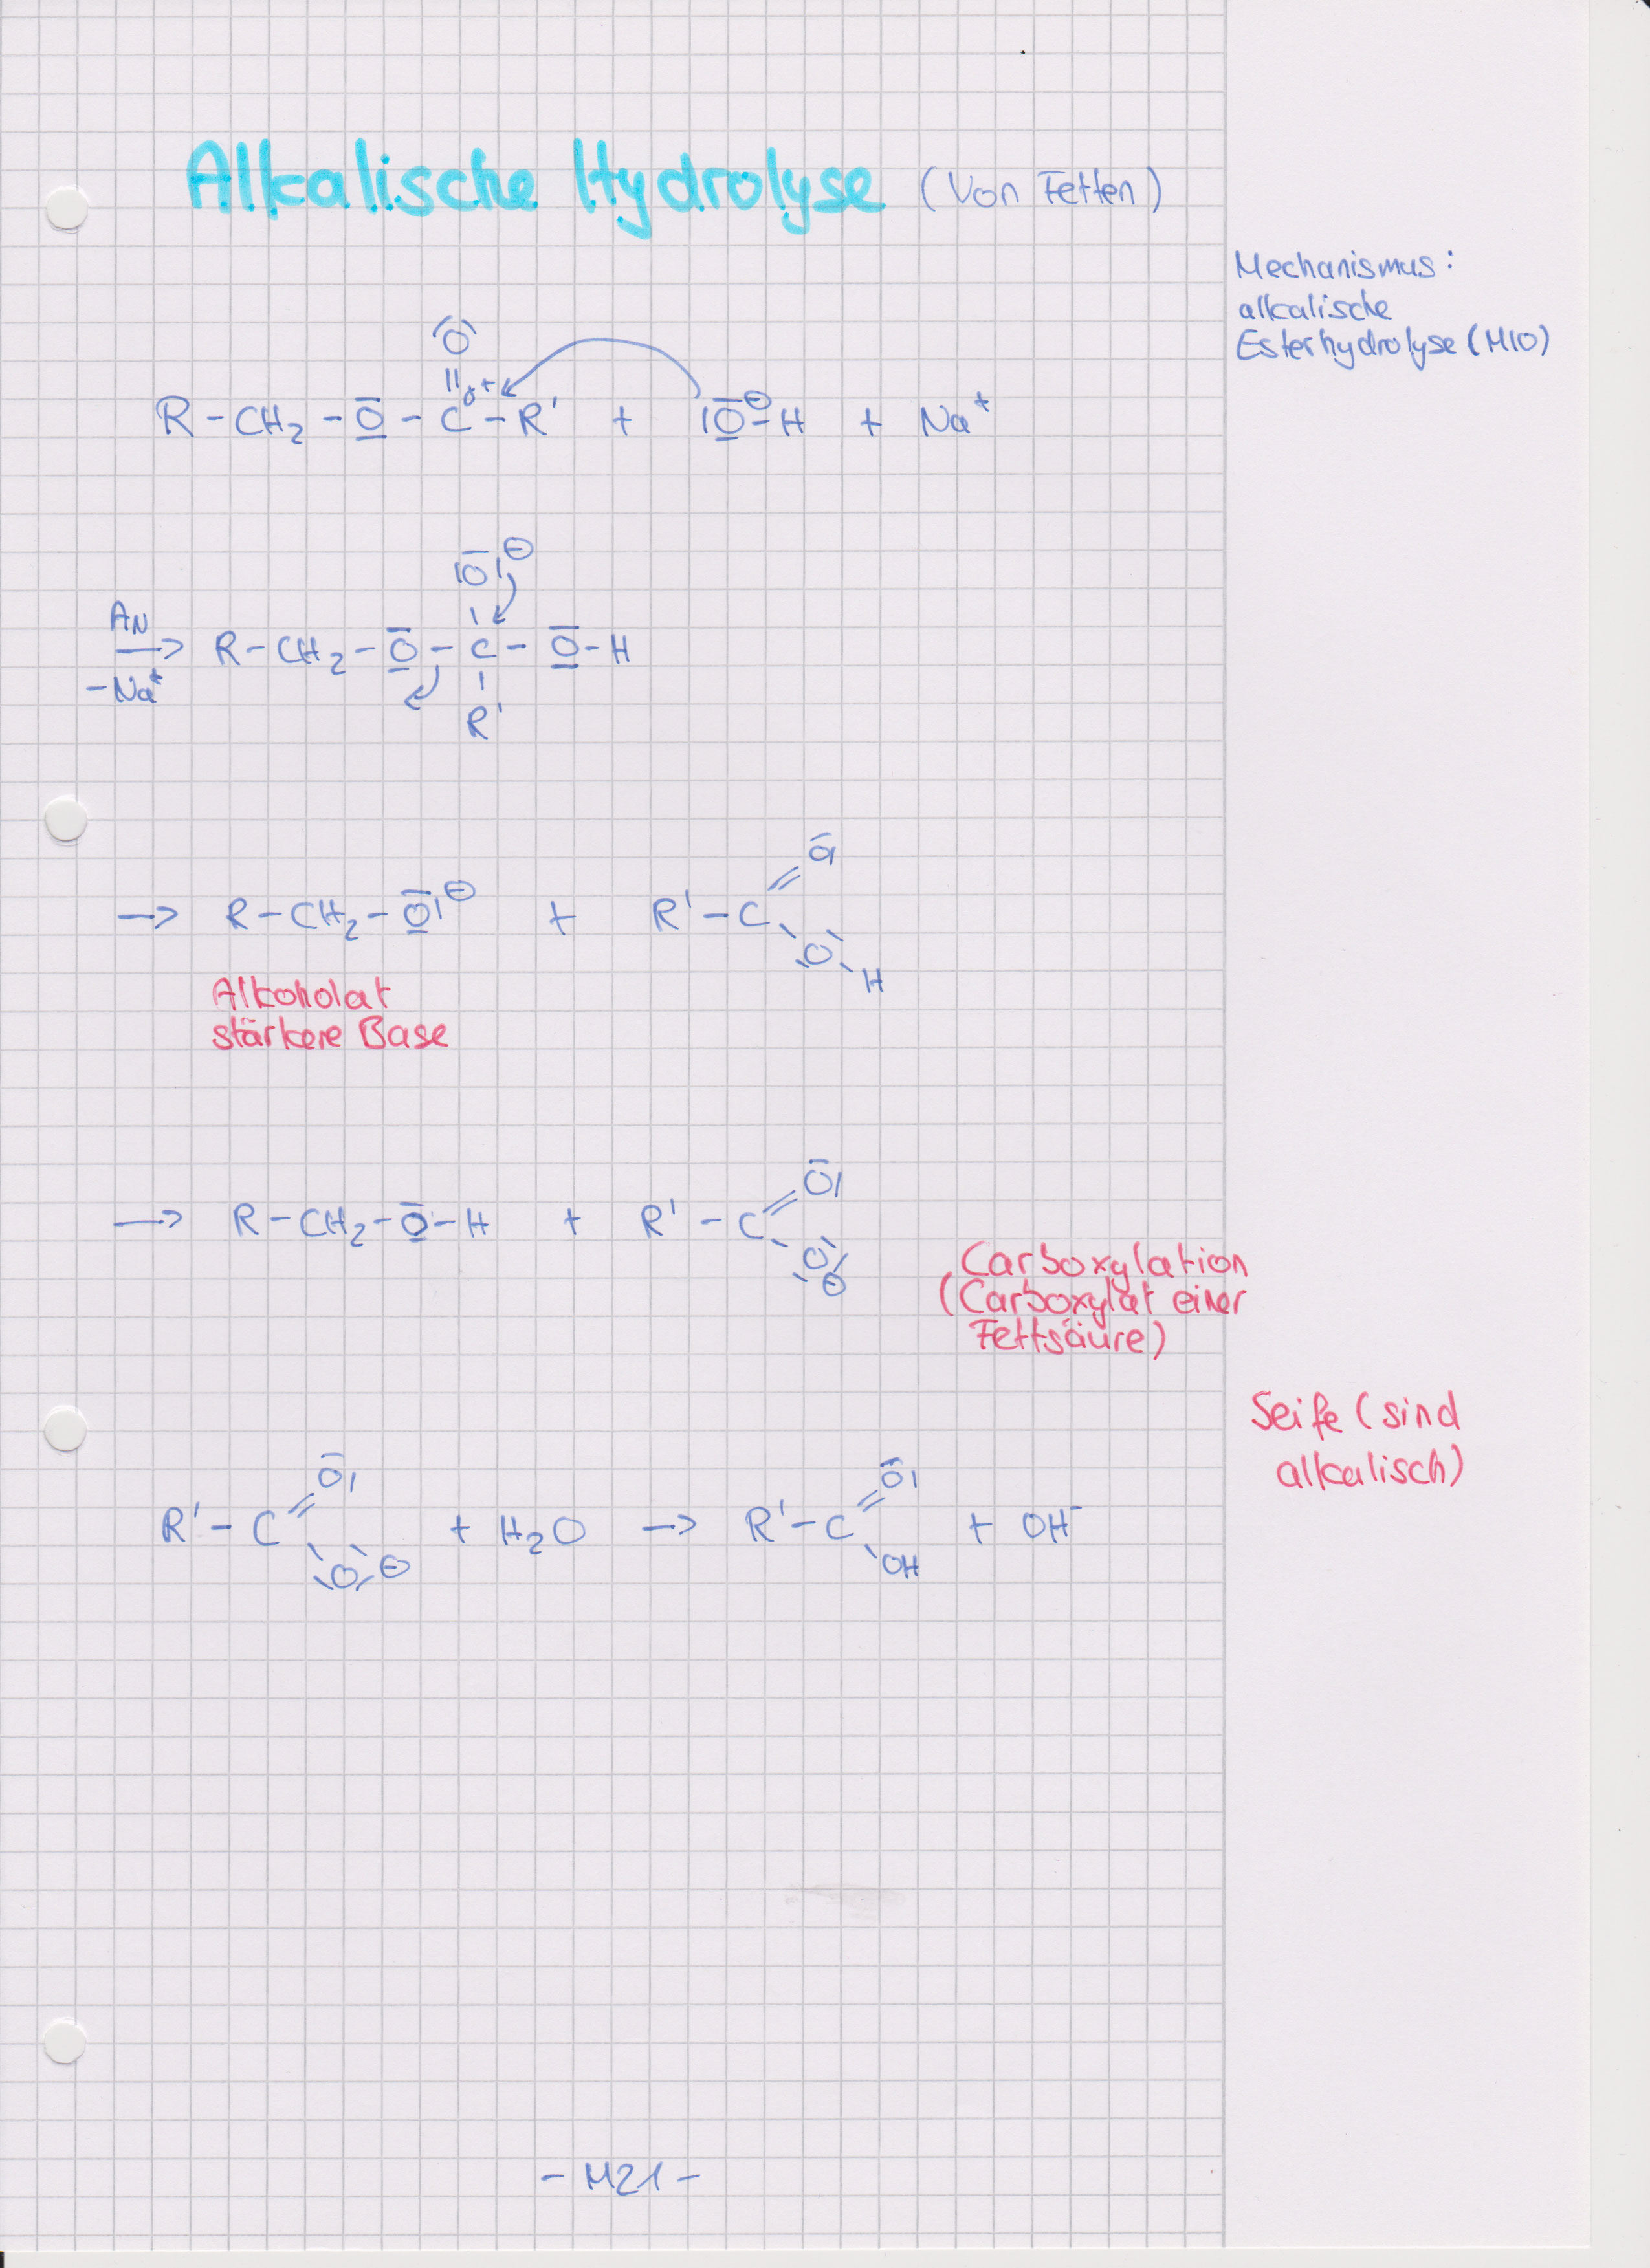 Alkalische Hydrolyse (Von Fetten)
Mechanismus:
alkalische
Esterhydrolyse (M10)
O
||
R - CH₂ - O - C^δ+ - R' + |O^⊖ - H + Na⁺
|O|^⊖
|
A_N
→ R - CH₂ - O - C - O - H
- Na⁺
|
R'
→ R - CH₂ - O|^⊖ + R' - C = O|
- O - H
Alkoholat
stärkere Base
→ R - CH₂ - O - H + R' - C = O|
- O^⊖
Carboxylation
(Carboxylat einer
Fettsäure)
Seife (sind
alkalisch)
R' - C = O| + H₂O → R' - C = O| + OH⁻
- O^⊖ - OH
- M21 -